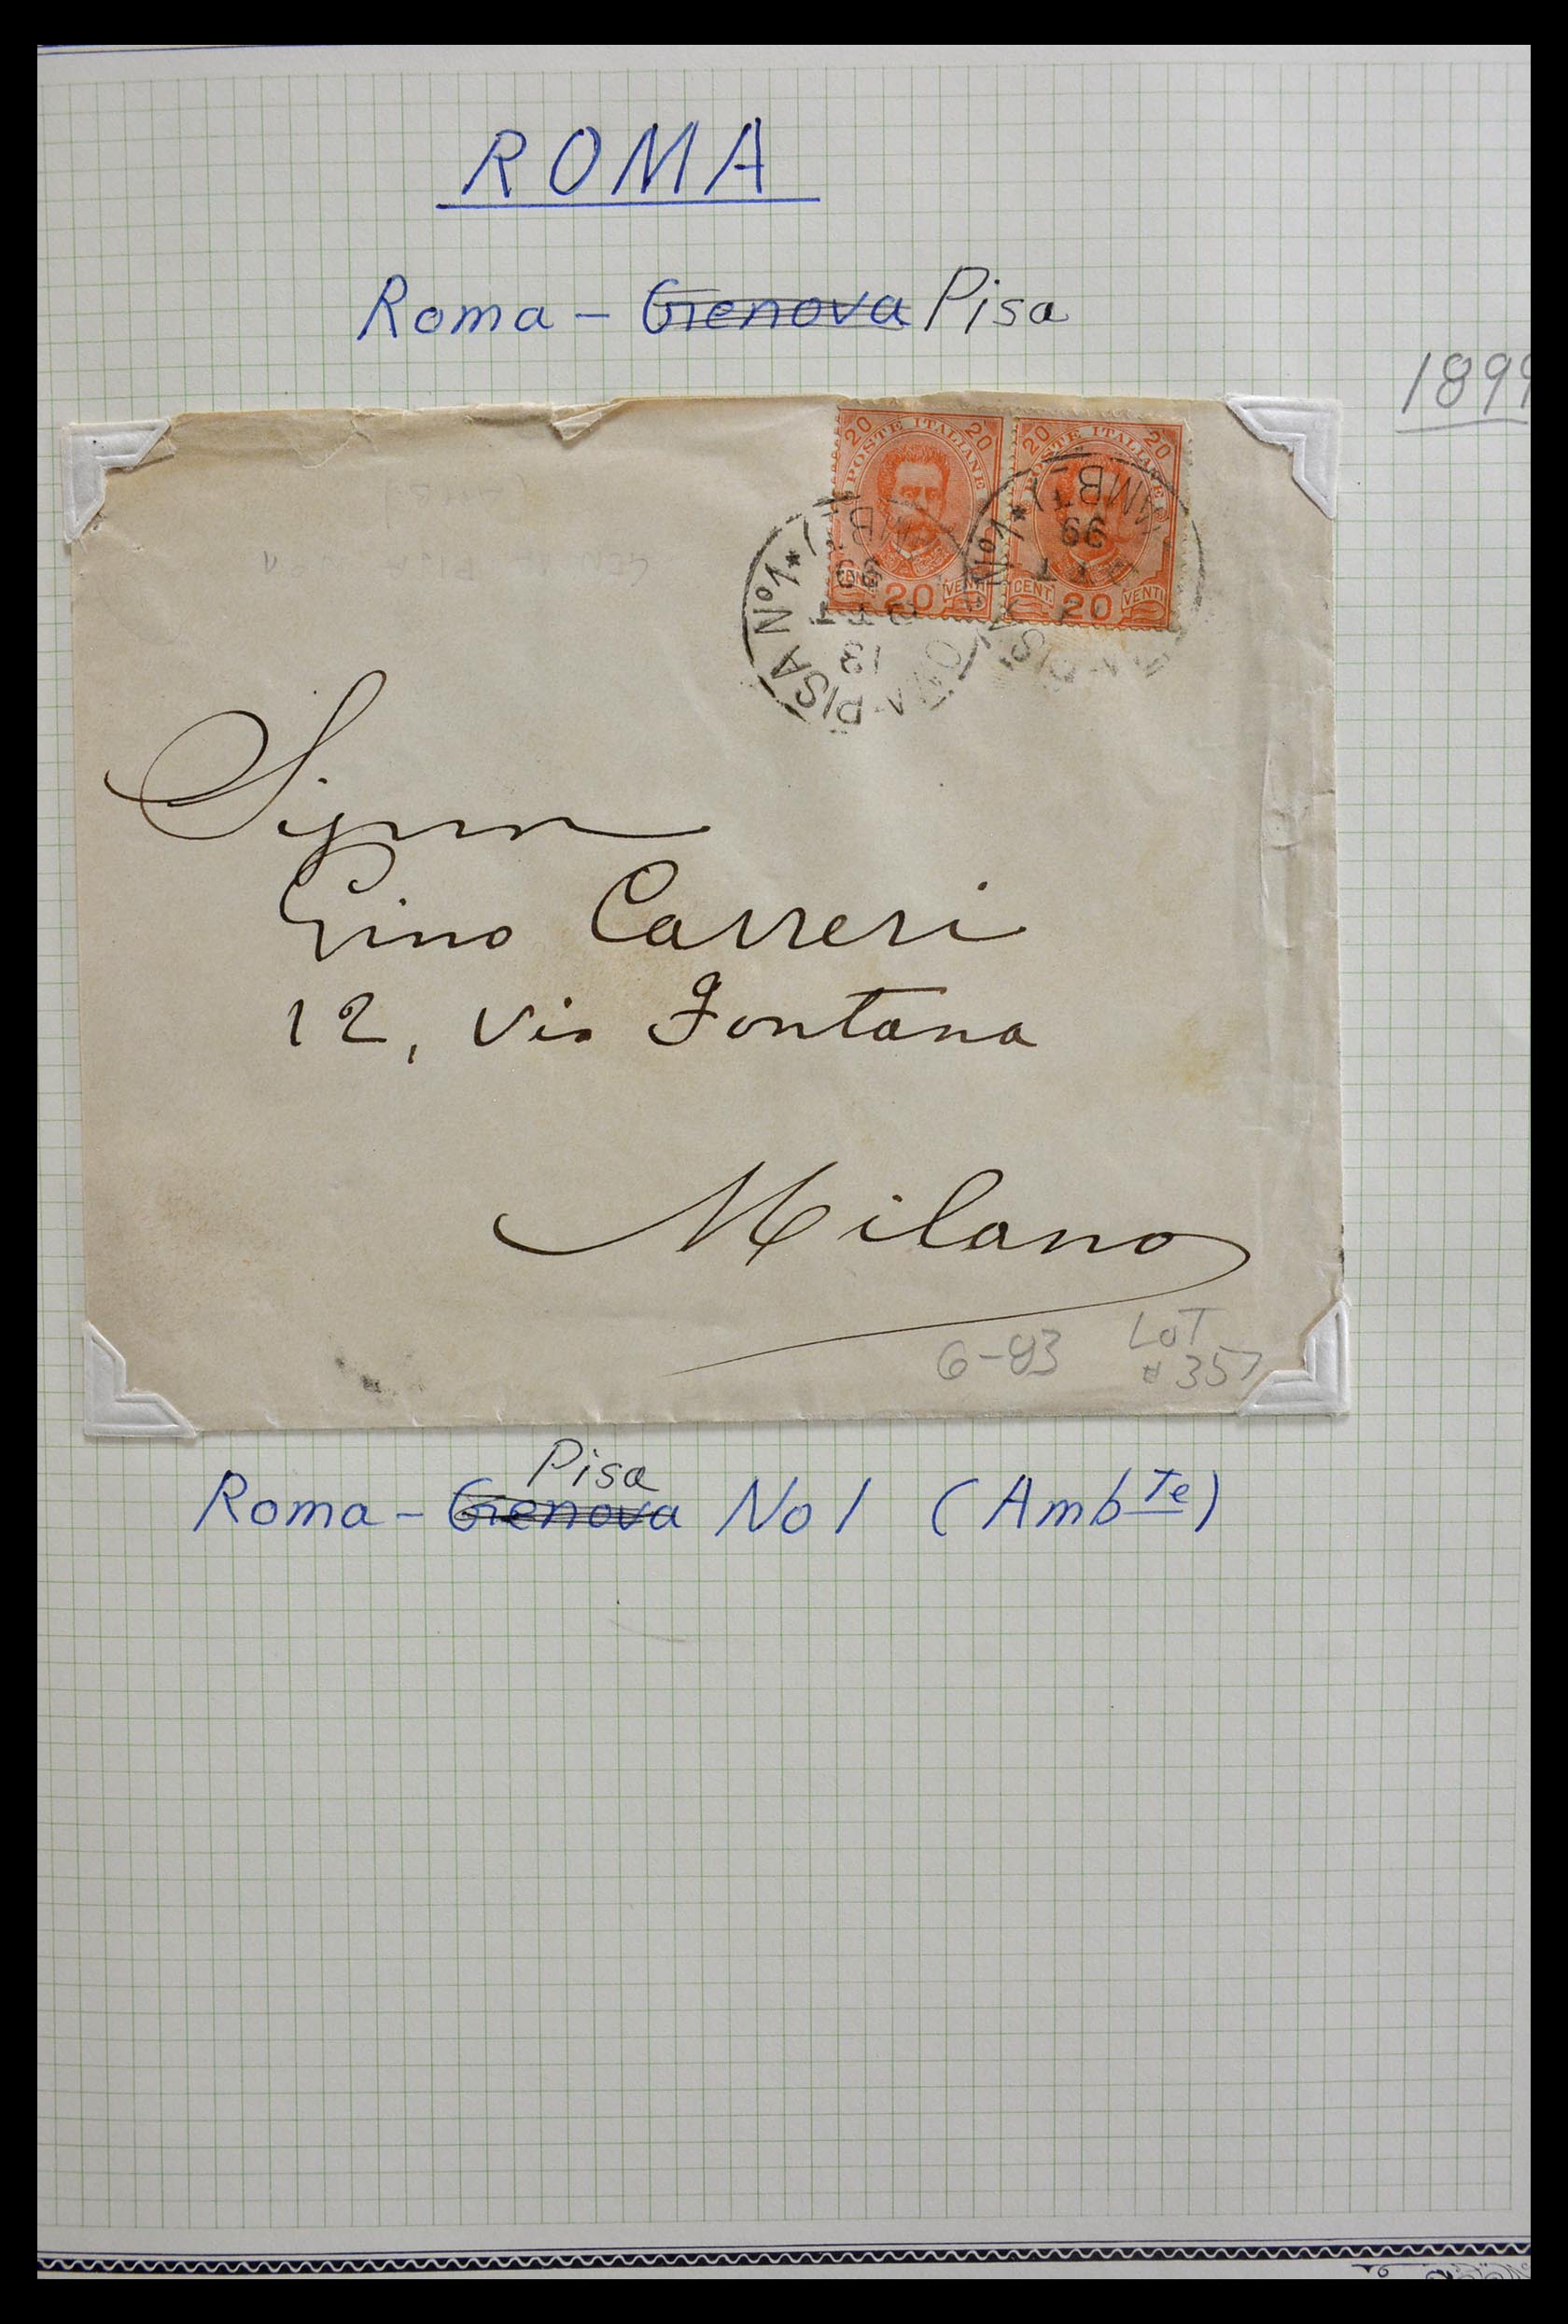 ROMA
Roma - Genova Pisa
1899
20 POSTE ITALIANE 20
CENT. 20 VENTI
20 POSTE ITALIANE 20
CENT. 20 VENTI
PISA No 1 * (AMB-
13
99
No 1 * (AMB-
99
Signor
Gino Carreri
12, via Fontana
Milano
6-93 LOT
#357
Pisa
Roma - Genova No 1 (Amb Te)